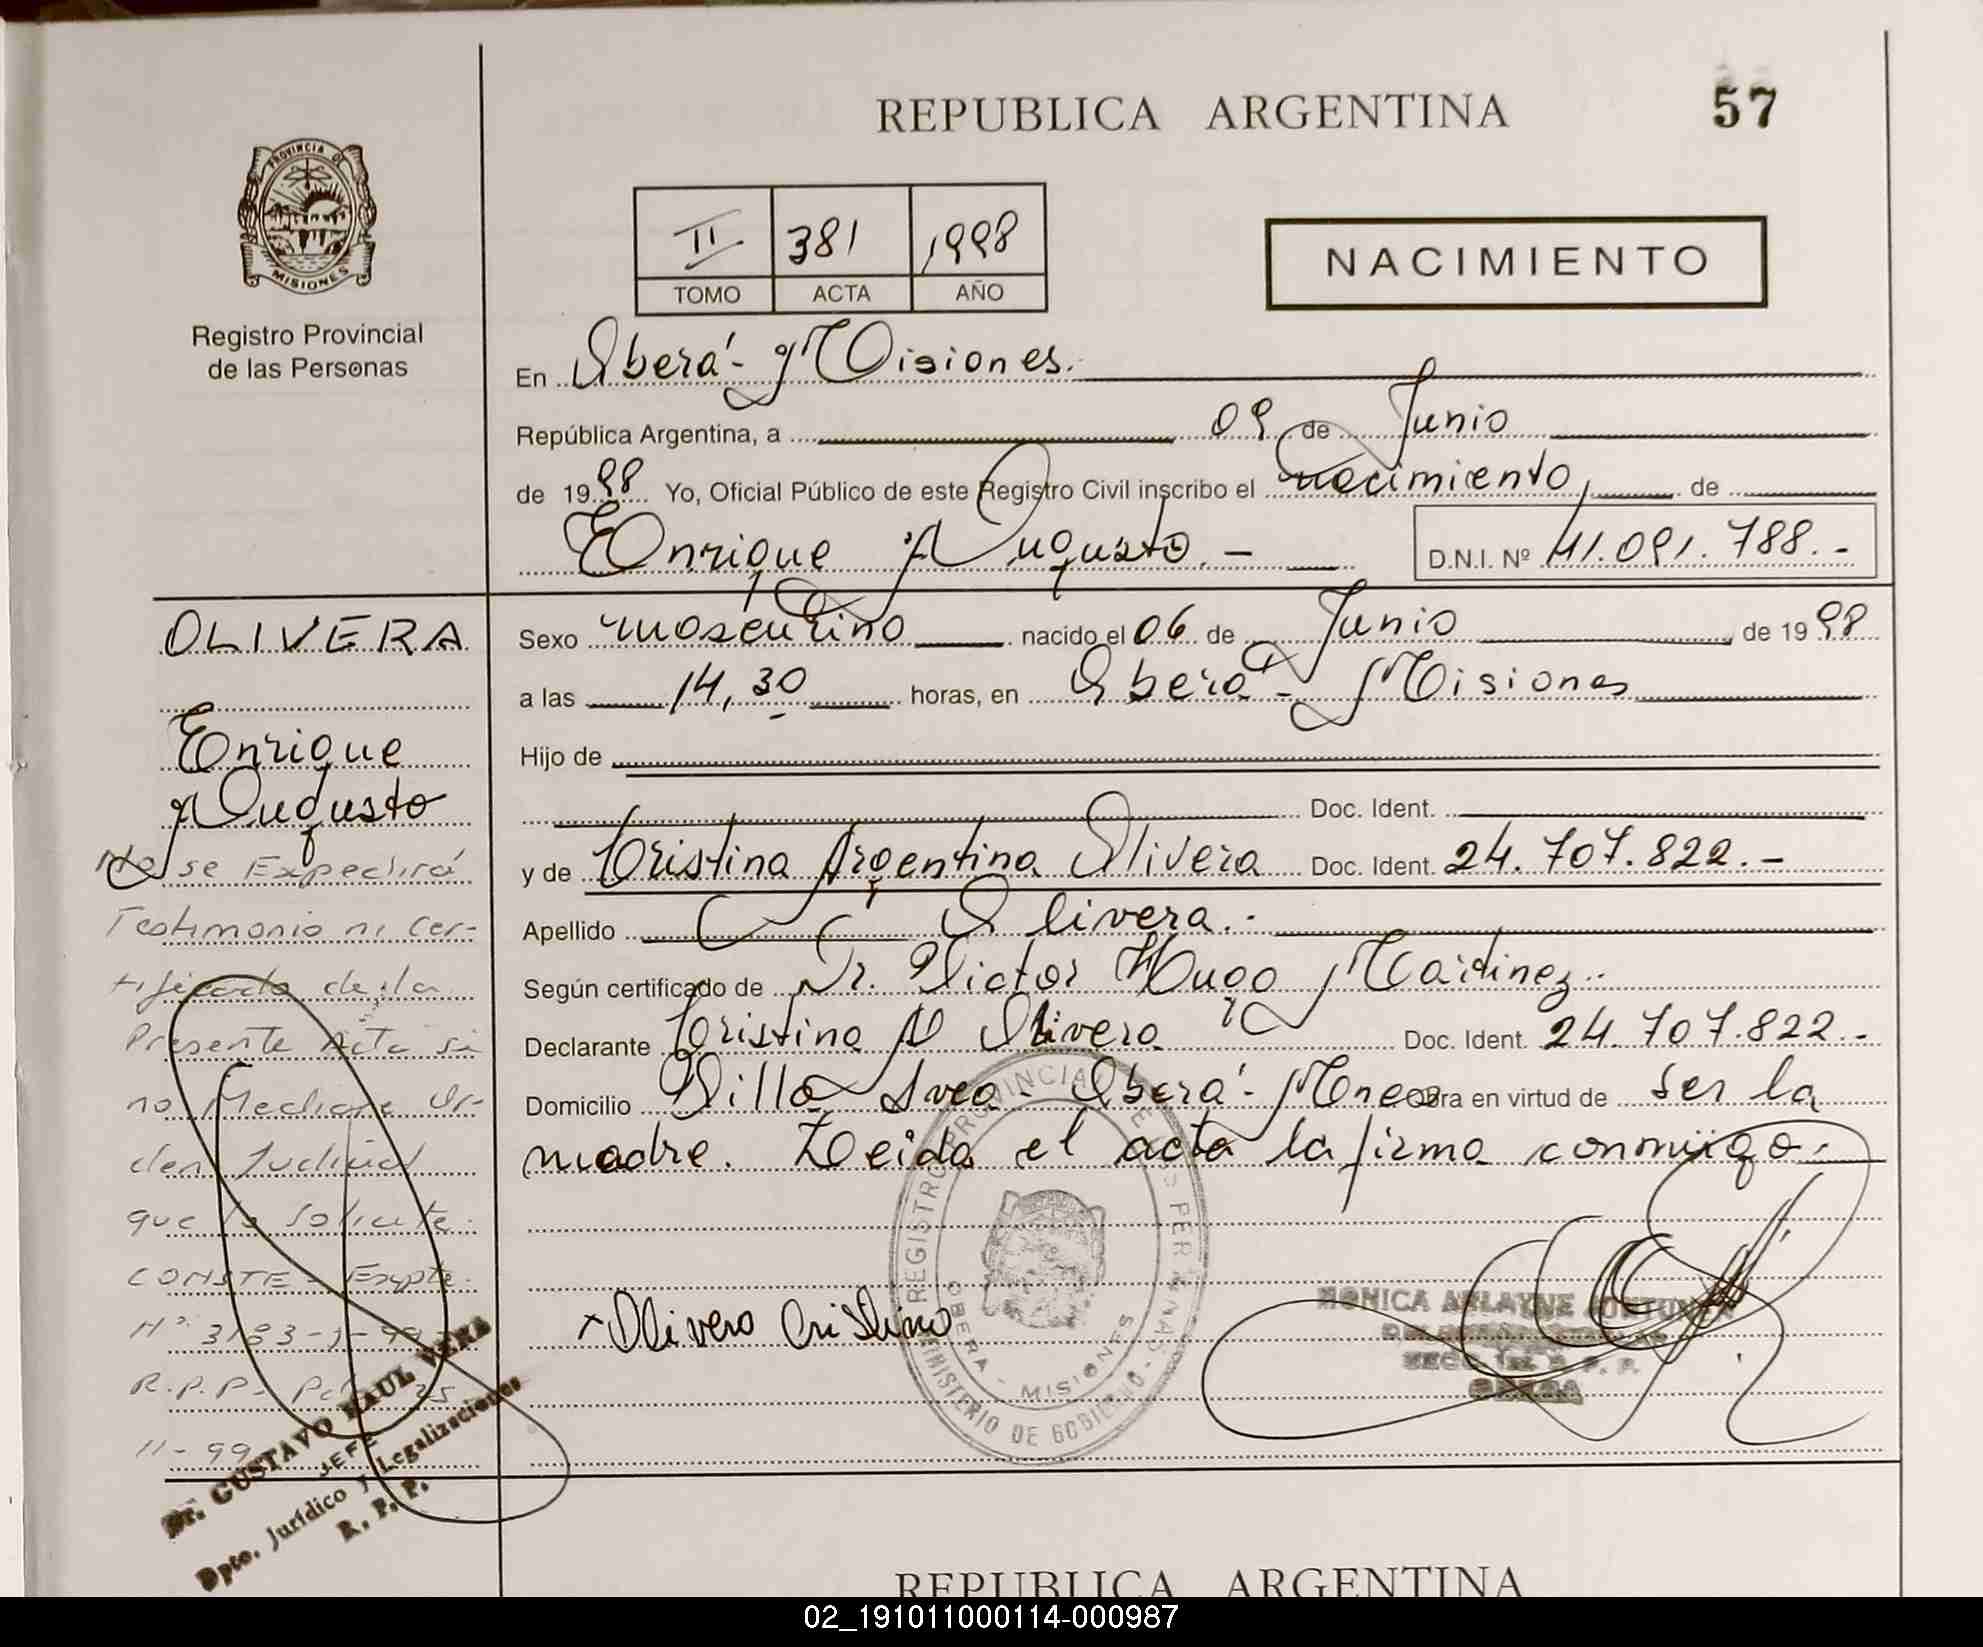 REPUBLICA ARGENTINA
57
PROVINCIA DE
MISIONES
Registro Provincial
de las Personas
II 381 1998
TOMO ACTA AÑO
NACIMIENTO
En Oberá - Misiones.
República Argentina, a 09 de Junio
de 1998 Yo, Oficial Público de este Registro Civil inscribo el nacimiento, de
Enrique Augusto. - D.N.I. Nº 41.091.788.-
OLIVERA
Enrique
Augusto
Sexo masculino nacido el 06 de Junio de 1998
a las 14,30 horas, en Oberá - Misiones
Hijo de
Doc. Ident.
y de Cristina Argentina Olivera Doc. Ident. 24.707.822.-
Apellido Olivera.
Según certificado de Dr. Victor Hugo Martinez.
Declarante Cristina A Olivera Doc. Ident. 24.707.822.-
Domicilio Villa Svea - Oberá - Mnes Obra en virtud de ser la
madre. Leida el acta la firma conmigo.
No se Expedirá
Testimonio ni Cer-
tificado de la
Presente Acta si
no Mediare Or-
den Judicial
que lo solicite.
CONSTE - Expte.
Nº 3183-J-99
R.P.P.
11-99
Dr. GUSTAVO RAUL VERA
JEFE
Dpto. Jurídico y Legalizaciones
R. P. P.
x Olivera Cristina
REGISTRO PROVINCIAL DE LAS PERSONAS
MINISTERIO DE GOBIERNO
OBERA - MISIONES
MONICA
OBERA
REPUBLICA ARGENTINA
02_191011000114-000987